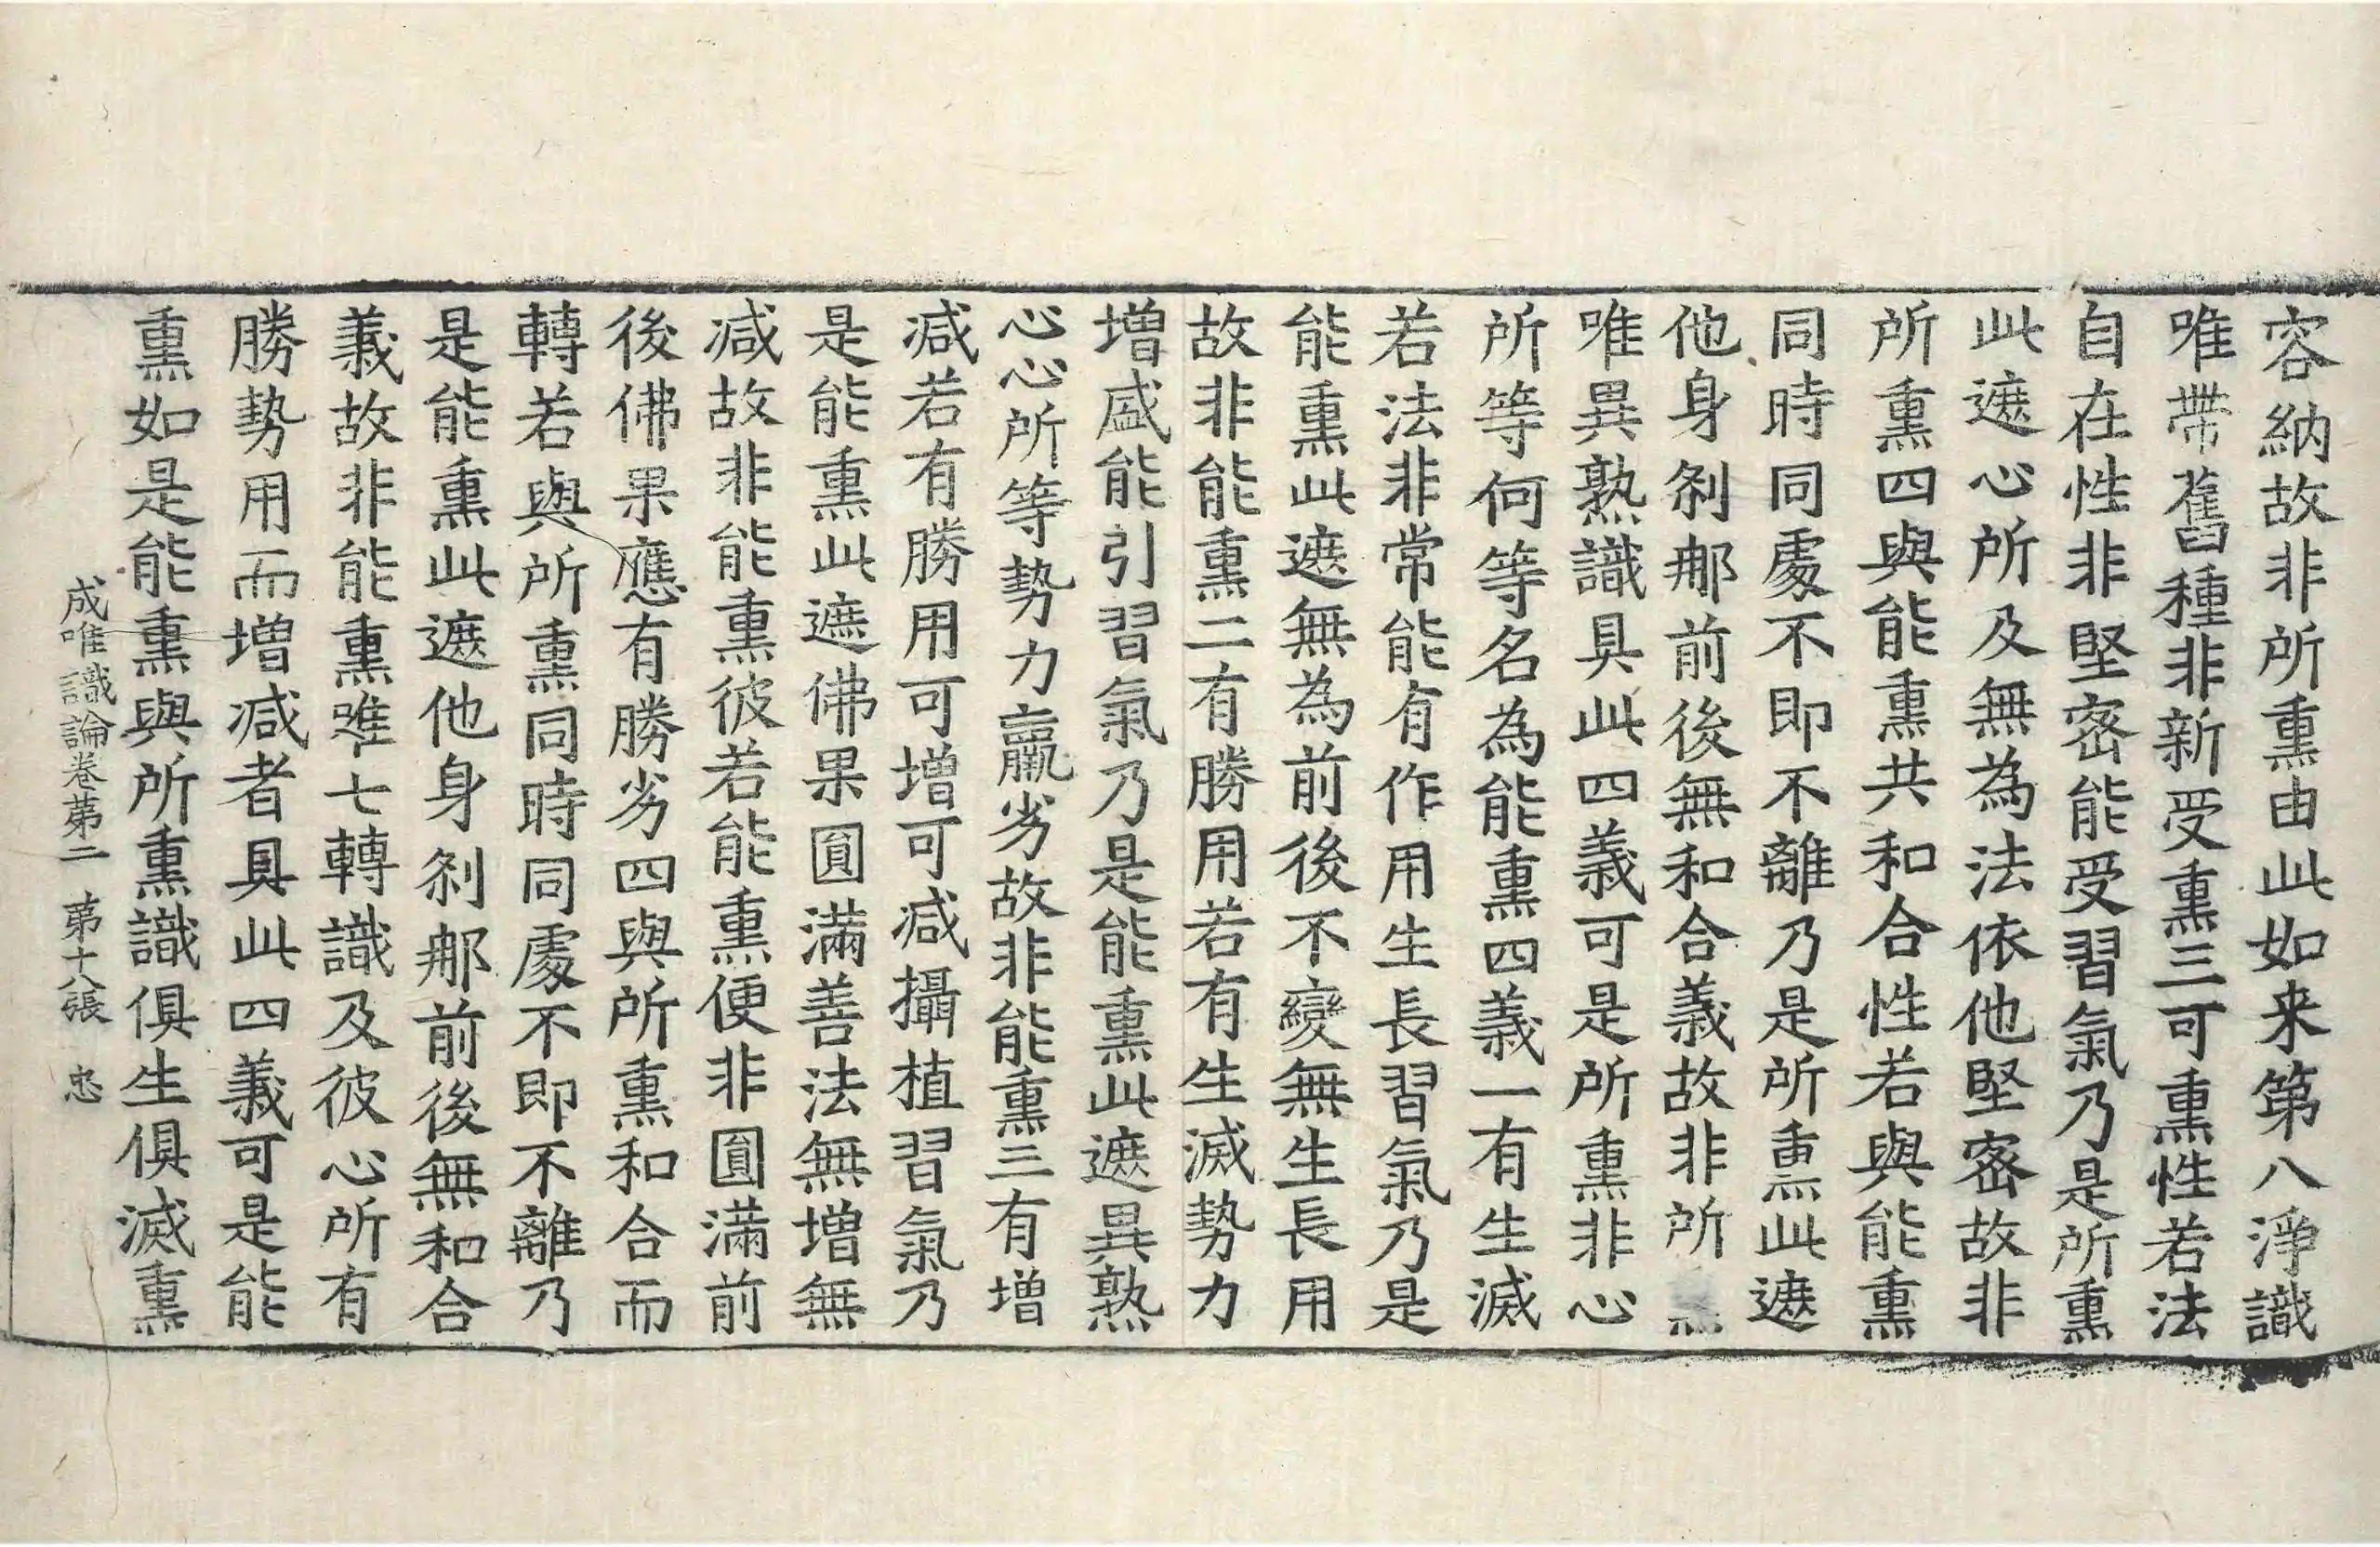 容納故非所熏由此如来第八淨識
唯帶舊種非新受熏三可熏性若法
自在性非堅密能受習氣乃是所熏
此遮心所及無為法依他堅密故非
所熏四與能熏共和合性若與能熏
同時同處不即不離乃是所熏此遮
他身剎那前後無和合義故非所熏
唯異熟識具此四義可是所熏非心
所等何等名為能熏四義一有生滅
若法非常能有作用生長習氣乃是
能熏此遮無為前後不變無生長用
故非能熏二有勝用若有生滅勢力
增盛能引習氣乃是能熏此遮異熟
心心所等勢力羸劣故非能熏三有增
减若有勝用可增可减攝植習氣乃
是能熏此遮佛果圓滿善法無增無
减故非能熏彼若能熏便非圓滿前
後佛果應有勝劣四與所熏和合而
轉若與所熏同時同處不即不離乃
是能熏此遮他身剎那前後無和合
義故非能熏唯七轉識及彼心所有
勝勢用而增减者具此四義可是能
熏如是能熏與所熏識俱生俱滅熏
成唯識論卷第二 第十八張 忠